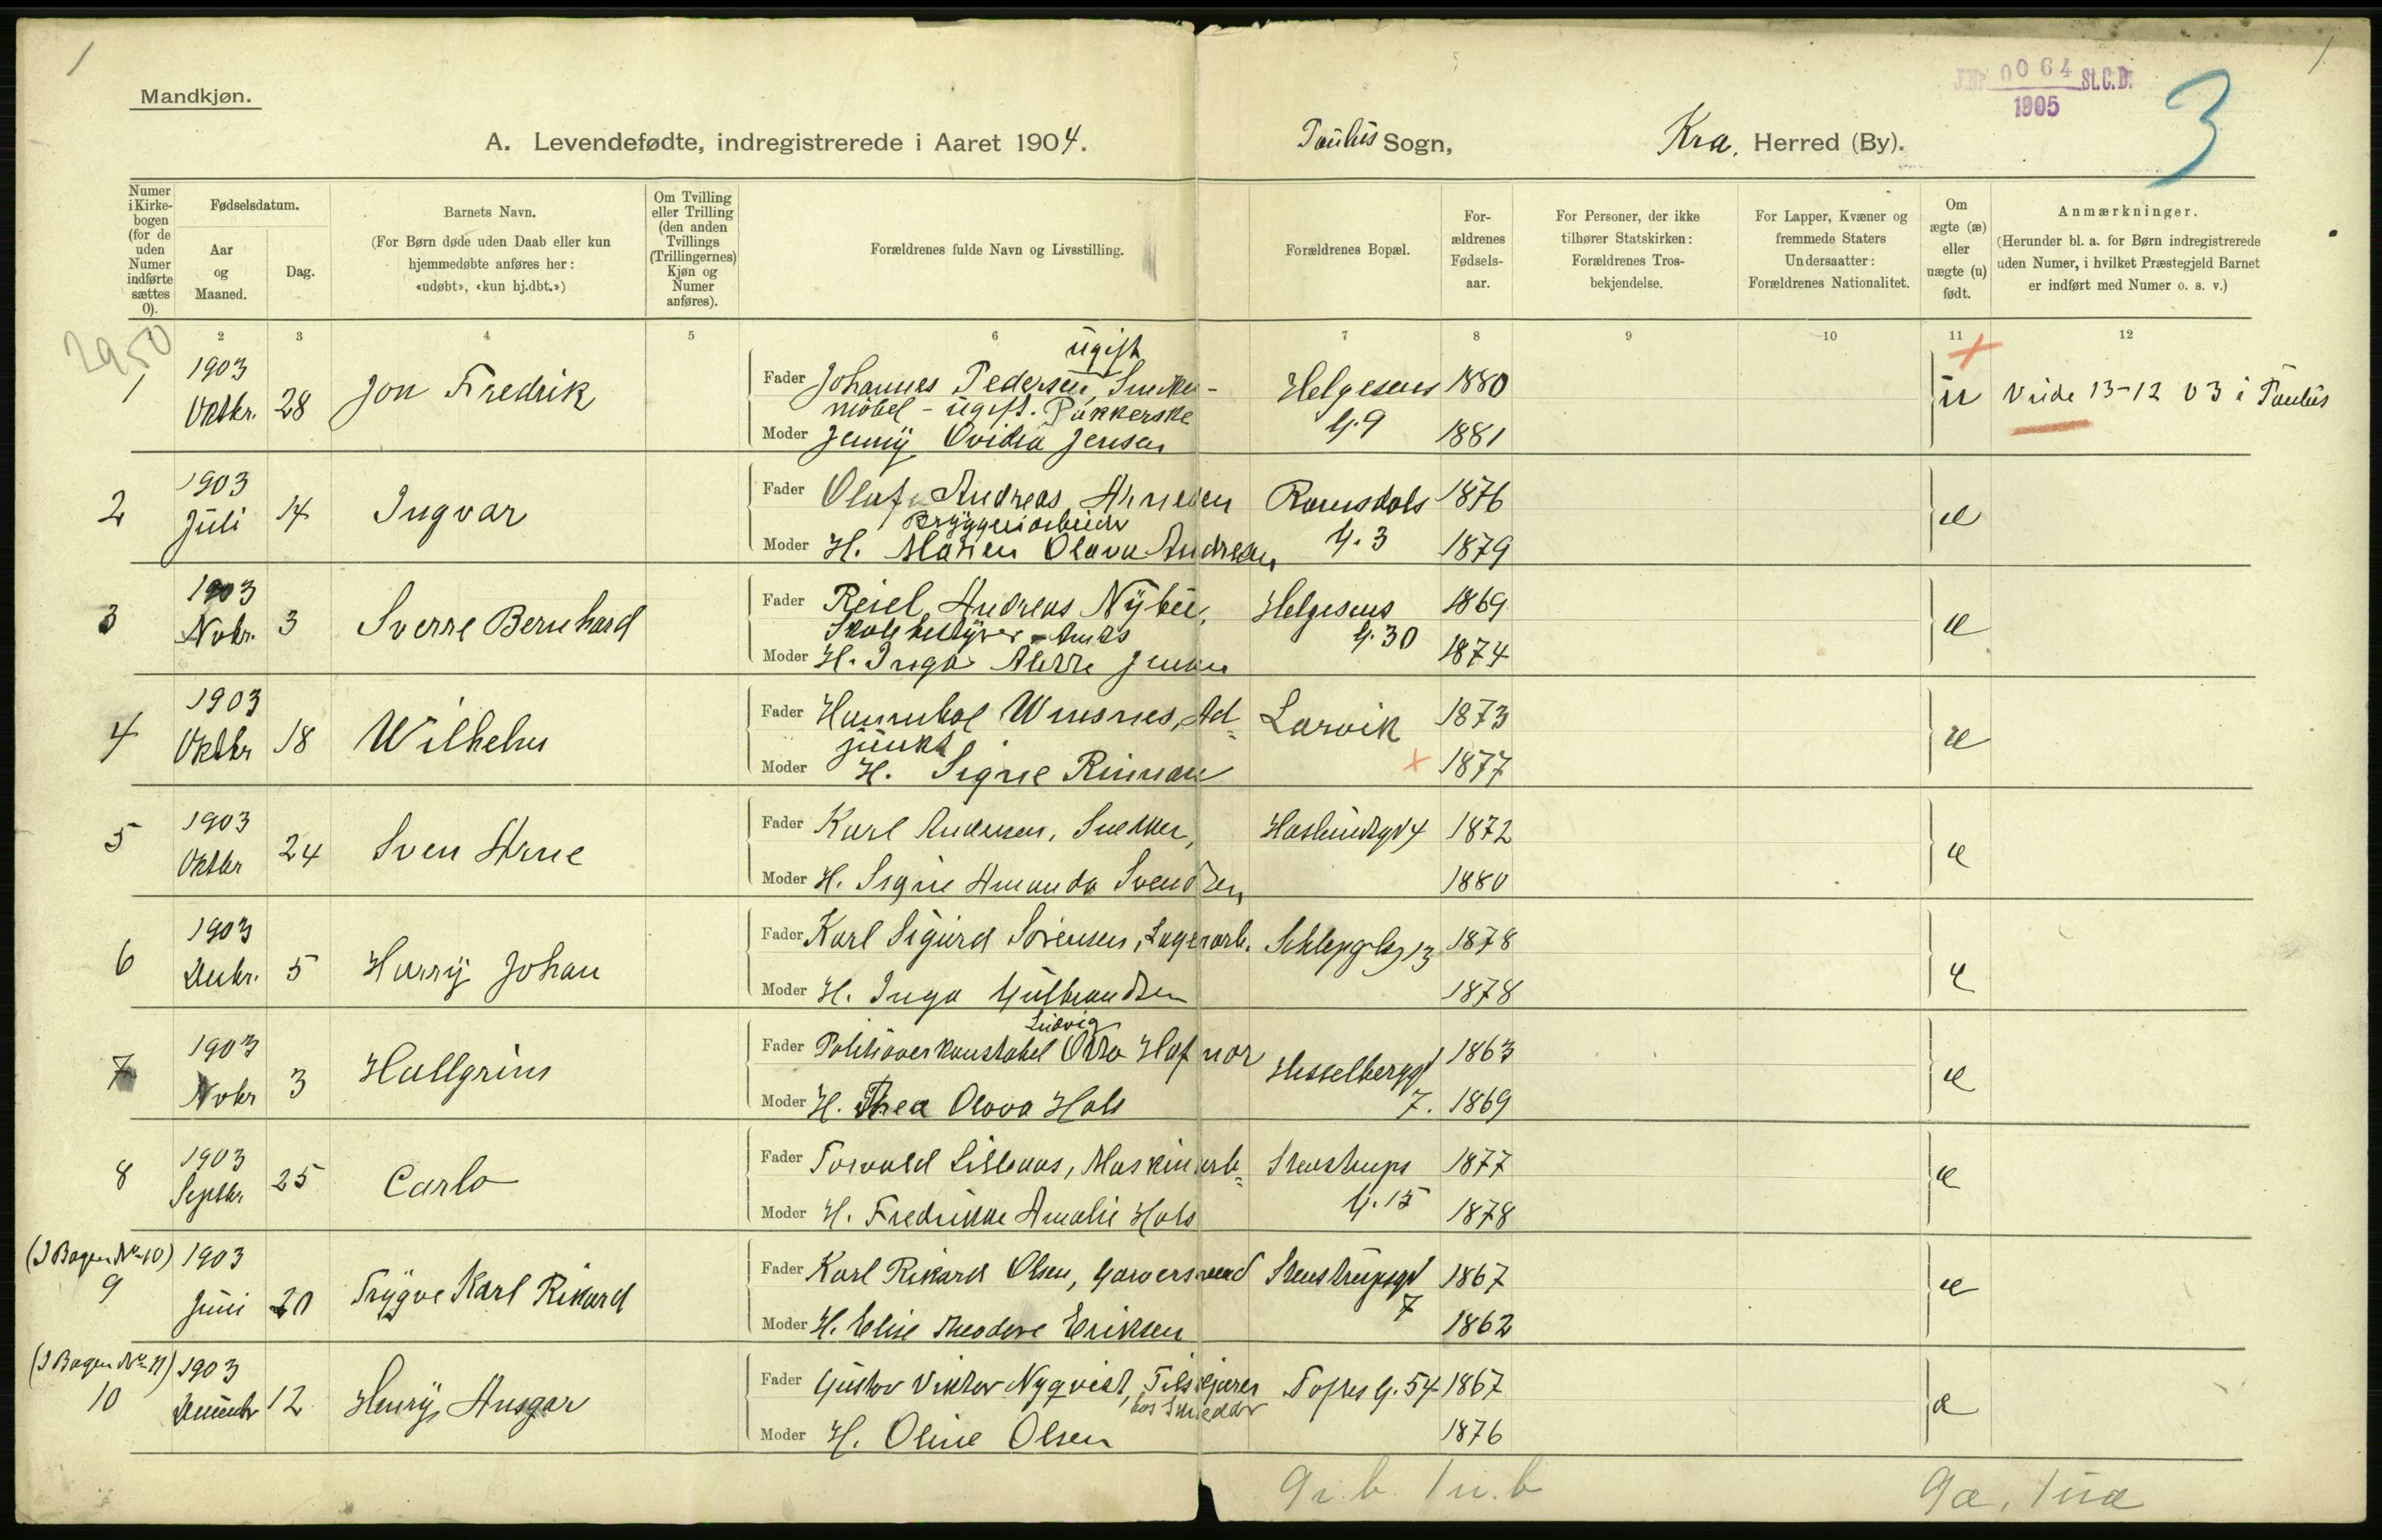 1
1
Mandkjøn.
J.Nr. 0064 St.C.D.
1905
3
A. Levendefødte, indregistrerede i Aaret 1904. Paulus Sogn, Kra. Herred (By).
Numer i Kirke-bogen (for de uden Numer indførte sættes 0).
Fødselsdatum.
Aar og Maaned.
Dag.
Barnets Navn.
(For Børn døde uden Daab eller kun hjemmedøbte anføres her: «udøbt», «kun hj.dbt.»)
Om Tvilling eller Trilling (den anden Tvillings (Trillingernes) Kjøn og Numer anføres).
Forældrenes fulde Navn og Livsstilling.
Forældrenes Bopæl.
For-ældrenes Fødsels-aar.
For Personer, der ikke tilhører Statskirken: Forældrenes Tros-bekjendelse.
For Lapper, Kvæner og fremmede Staters Undersaatter: Forældrenes Nationalitet.
Om ægte (æ) eller uægte (u) født.
Anmærkninger.
(Herunder bl. a. for Børn indregistrerede uden Numer, i hvilket Præstegjeld Barnet er indført med Numer o. s. v.)
2950
2 3 4 5 6 7 8 9 10 11 12
1 1903 Oktbr. 28 Jon Fredrik
ugift
Fader Johannes Pedersen, Snekker- Helgesens 1880
møbel - ugift.
Moder Jenny Ovidia Jensen G. 9 1881
u Vide 13-12 03 i Paulus
2 1903 Juli 14 Ingvar
Fader Olaf Andreas Arnesen Romsdals 1876
Bryggeriarbeider
Moder H. Maren Olava Andresen G. 3 1879
æ
3 1903 Nobr. 3 Sverre Bernhard
Fader Reiel Andreas Nybu, Helgesens 1869
Skolebestyrer
Moder H. Inga Jensen G. 30 1874
æ
4 1903 Oktbr 18 Wilhelm
Fader Hannibal Wiisnes, Ad= Larvik 1873
junkt
Moder H. Signe Rinnan 1877
æ
5 1903 Oktbr 24 Sven Arne
Fader Karl Andersen, Snekker, Haslundgd 4 1872
Moder H. Signe Amanda Svendsen 1880
æ
6 1903 Decbr. 5 Harry Johan
Fader Karl Sigurd Sørensen, Lagerarb. 13 1878
Moder H. Inga Gulbrandsen 1878
æ
7 1903 Nobr 3 Hallgrim
Ludvig
Fader Politioverkonstabel Otto Hafnor Hesselberggd 1863
Moder H. Thea Olava Hals 7. 1869
æ
8 1903 Septbr 25 Carlo
Fader Torvald Lillaas, Maskinarb= Stenstrups 1877
Moder H. Fredrikke Amalie Hals G. 15 1878
æ
(I Bogen No 10)
9 1903 Juni 20 Trygve Karl Rikard
Fader Karl Rikard Olsen, Garversvend Stenstrupsgd 1867
Moder H. Elise Theodore Eriksen 7 1862
æ
(I Bogen No 11)
10 1903 Decembr 12 Henry Ansgar
Fader Gustav Viktor Nyqvist, Tilskjærer Toftes G. 54 1867
hos Skrædder
Moder H. Oline Olsen 1876
æ
9 i. b. 1 u. b 9æ, 1uæ